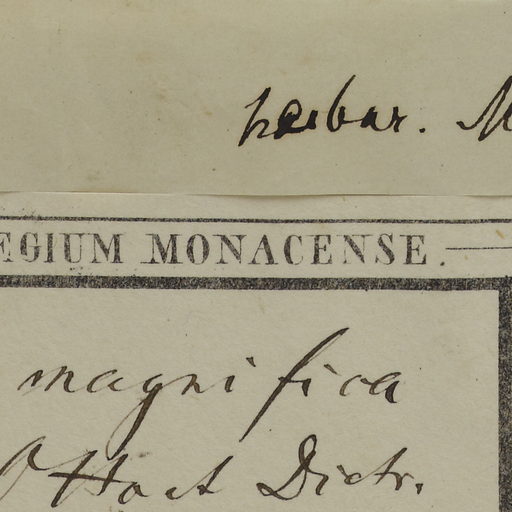 herbar. M
EGIUM MONACENSE.
magnifica
Otto et Dietr.